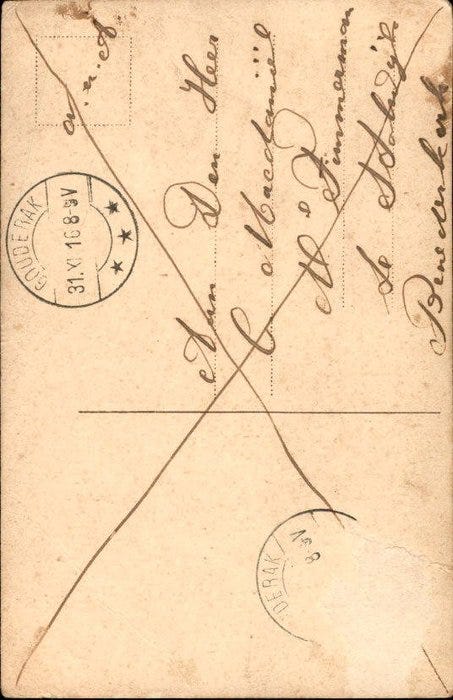 a. n. A
GOUDERAK
31.XI 16 8-9V
Aan Den Heer
C Macdaniël
M° Timmerman
Le Stolwijk
Benedenkerk
DERAK
8-9V